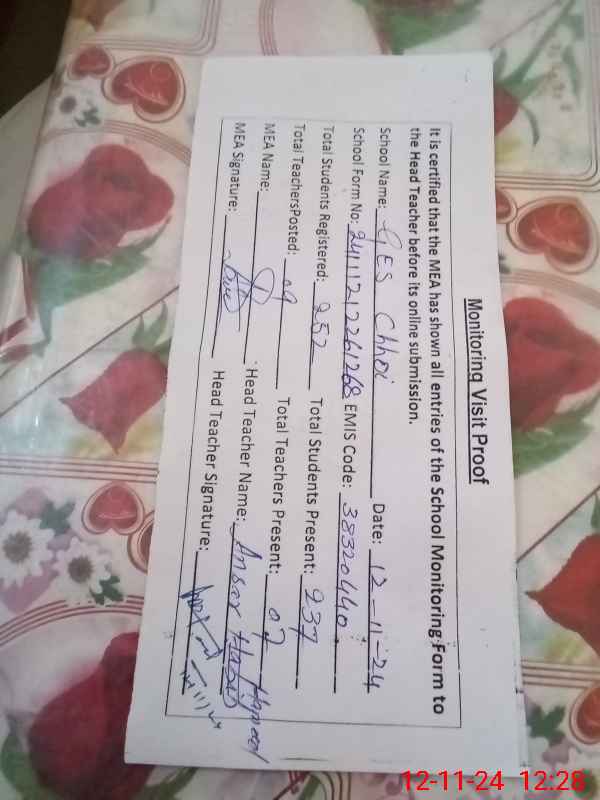 Monitoring Visit Proof
It is certified that the MEA has shown all entries of the School Monitoring Form to
the Head Teacher before its online submission.
School Name: GES Chhoi Date: 12-11-24
School Form No: 24111212261268 EMIS Code: 38320440
Total Students Registered: 252 Total Students Present: 237
Total TeachersPosted: 09 Total Teachers Present: 07
MEA Name: Head Teacher Name: Ansar Hasan
MEA Signature: Head Teacher Signature:
12-11-24 12:28